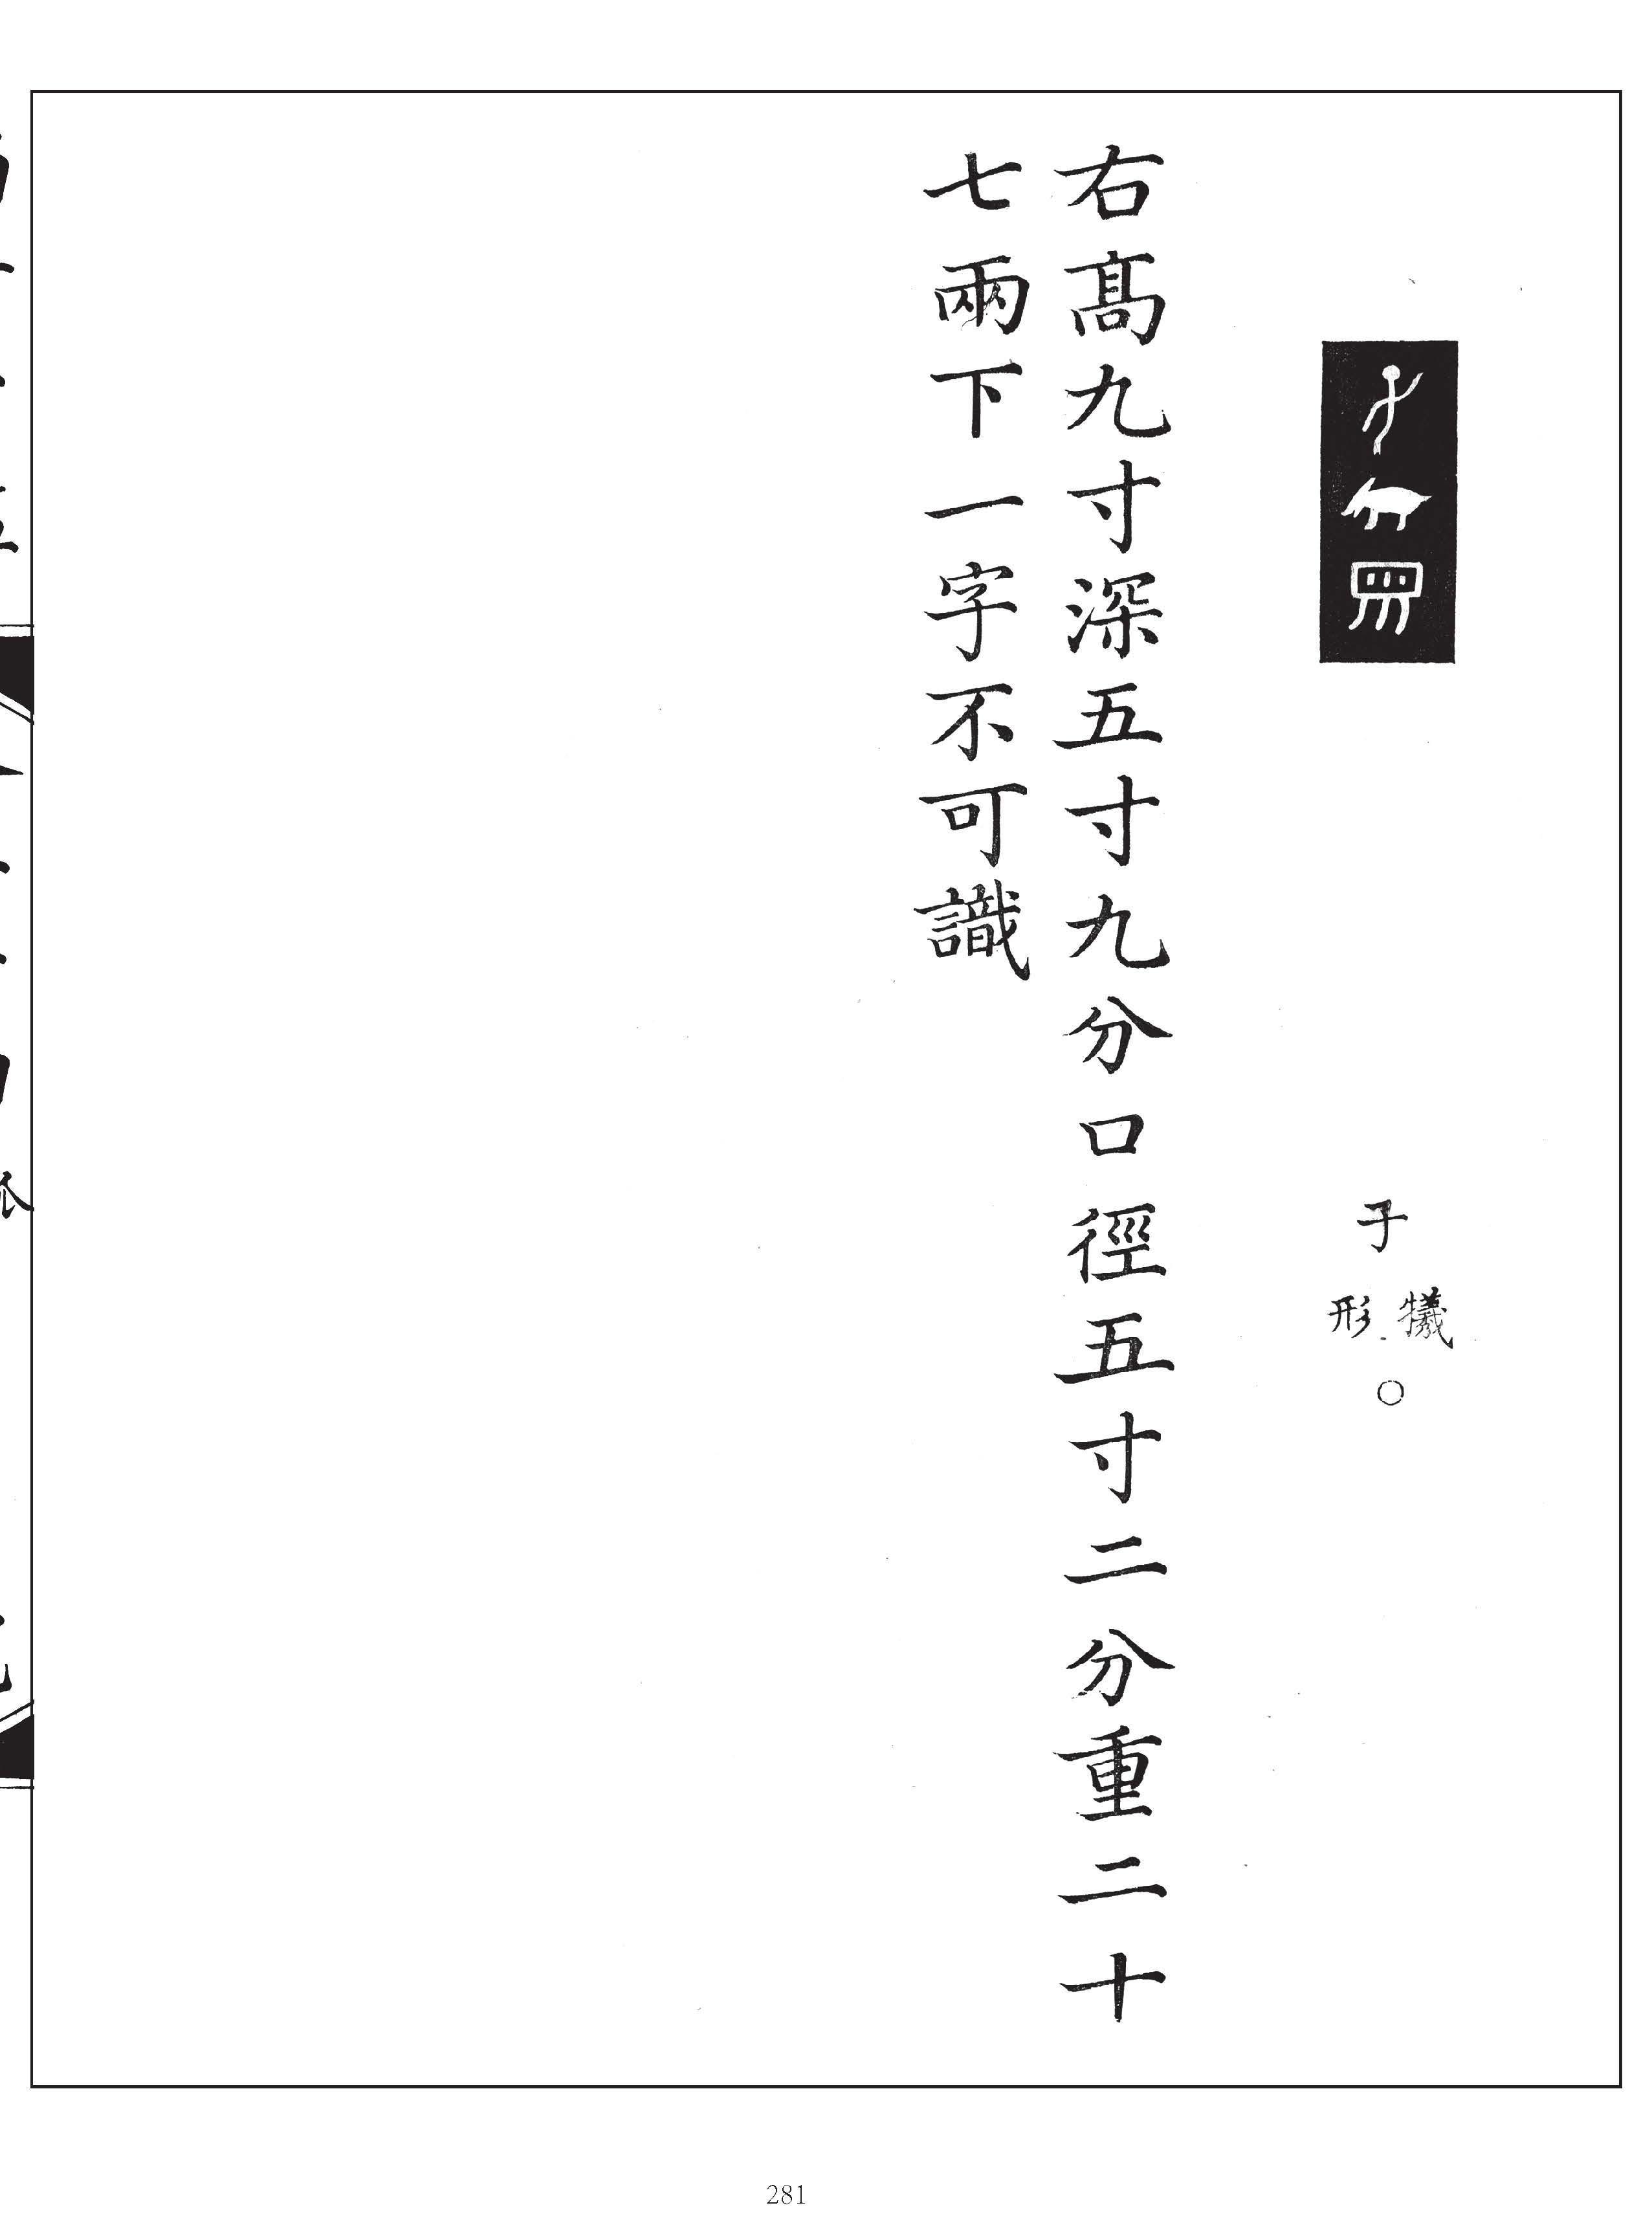 子 犧形 ○
右高九寸深五寸九分口徑五寸二分重二十
七兩下一字不可識
281